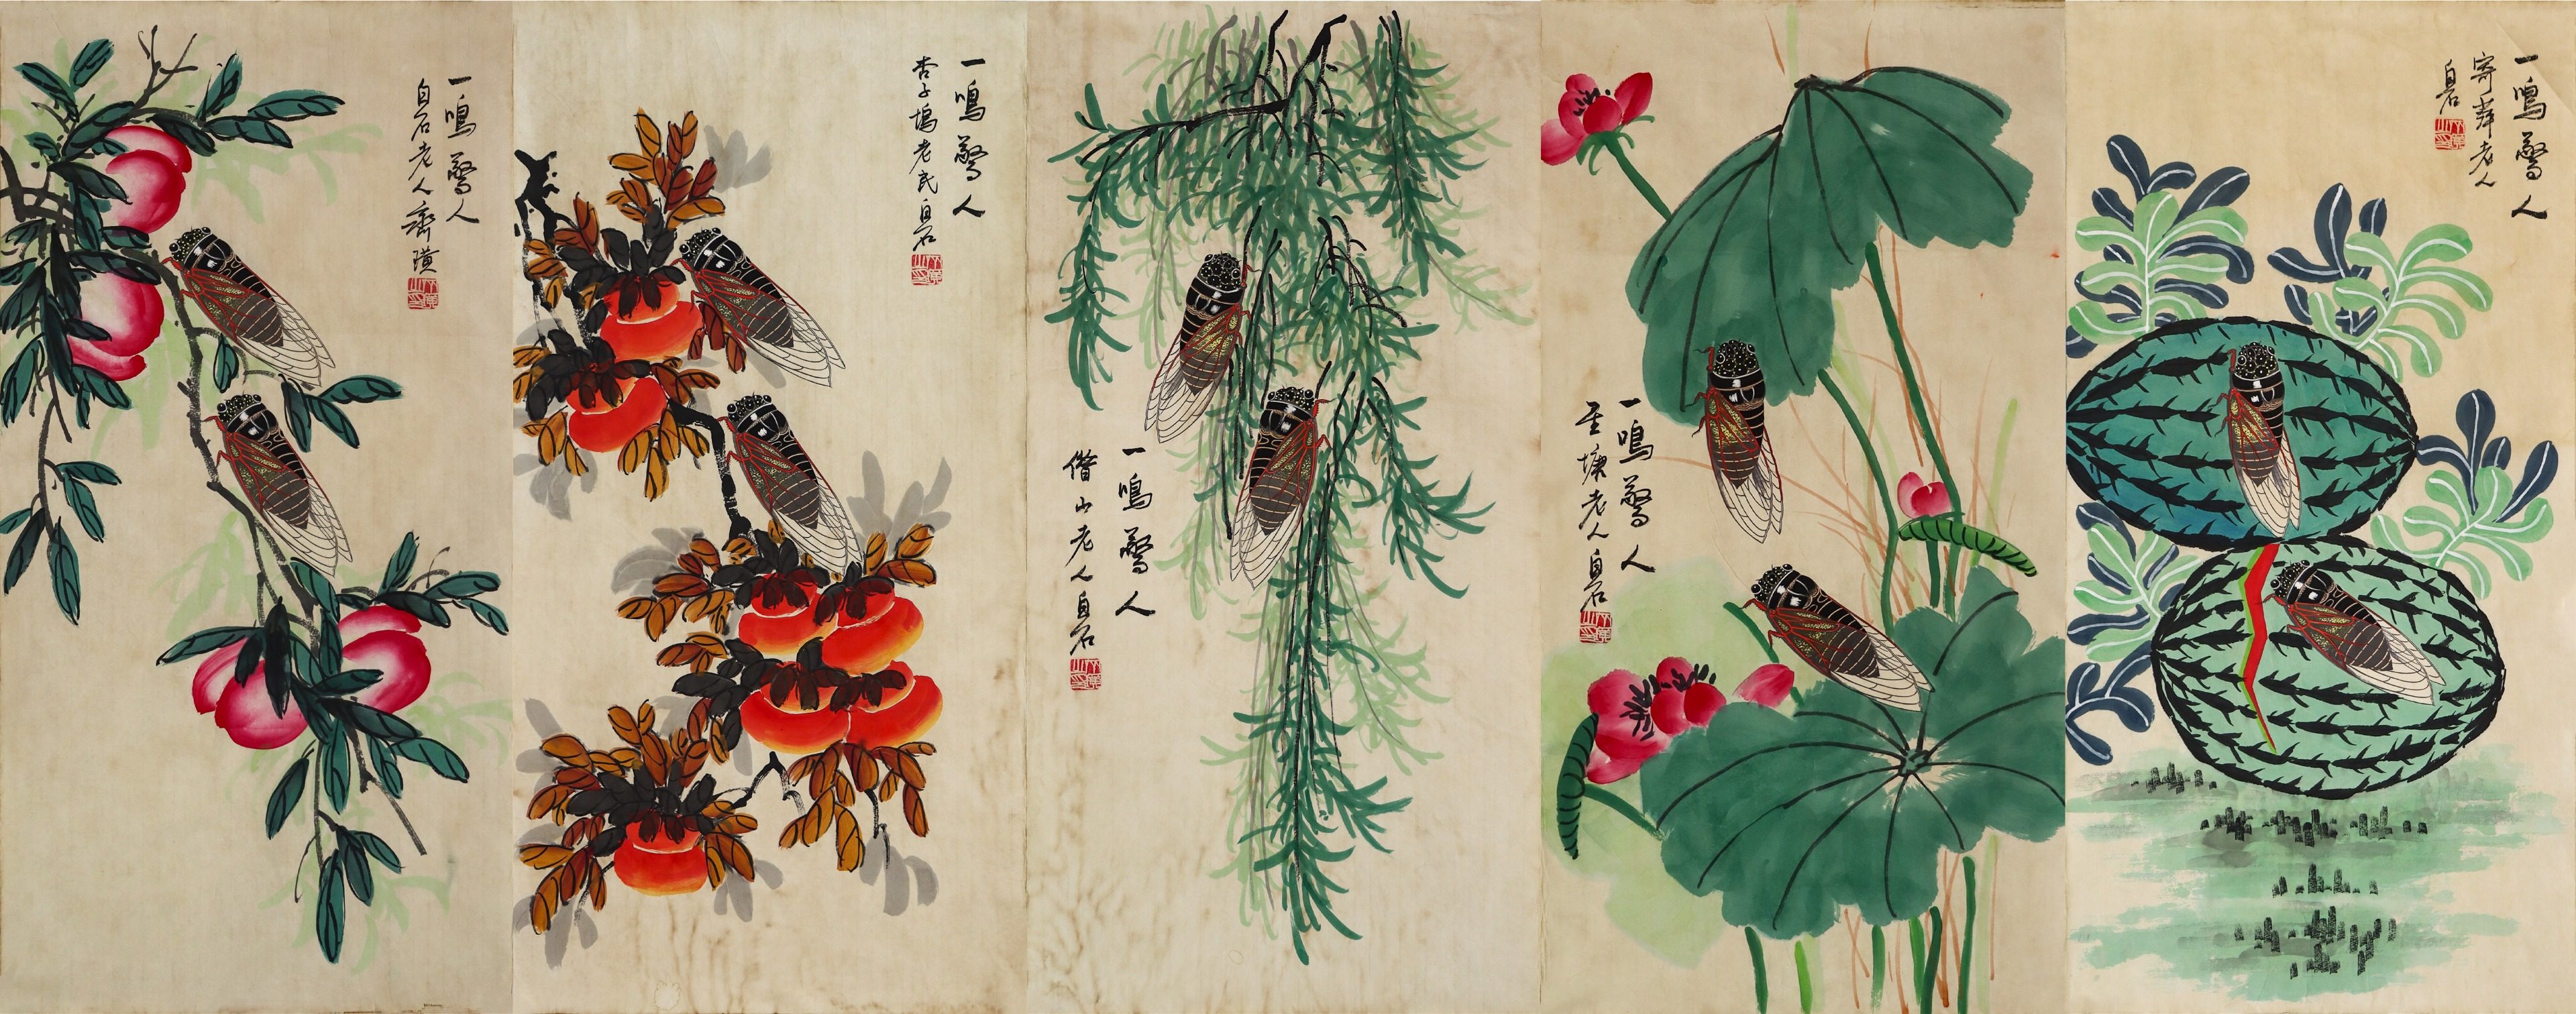 一鳴驚人
白石老人齊璜
一鳴驚人
杏子塢老民白石
一鳴驚人
借山老人白石
一鳴驚人
星塘老人白石
一鳴驚人
寄萍老人
白石